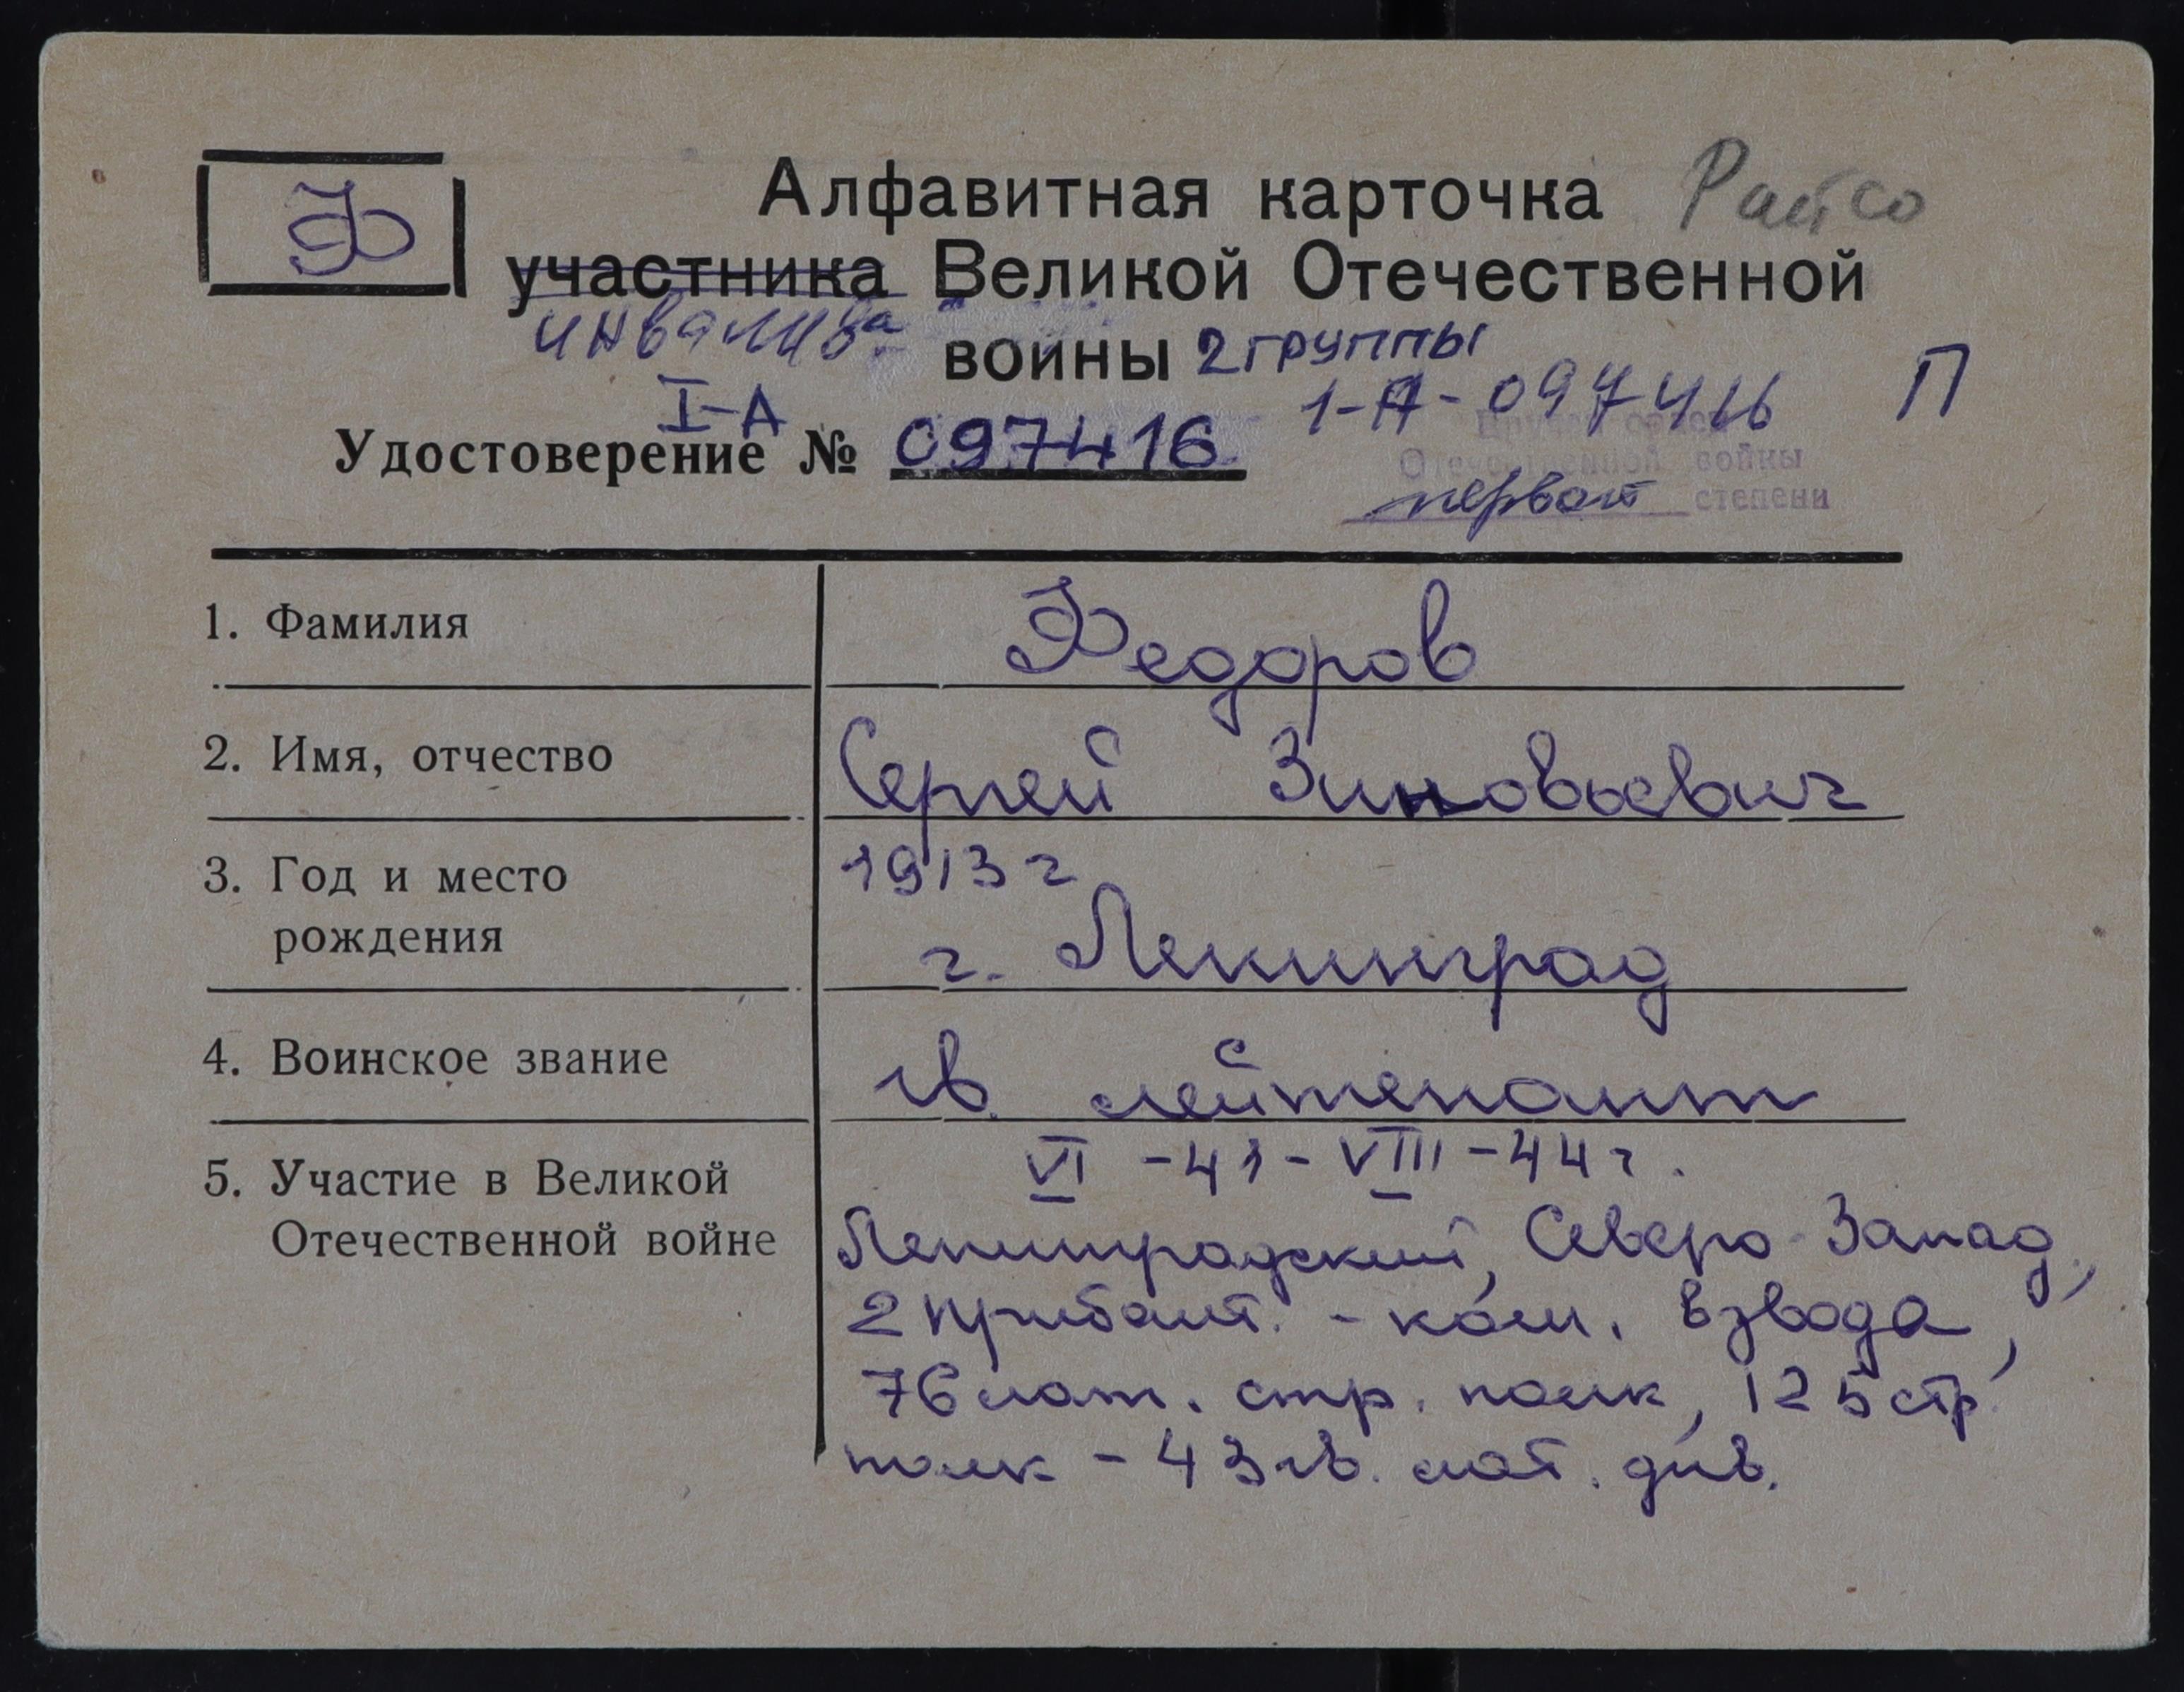 Ф
Алфавитная карточка Райсо
участника Великой Отечественной
инвалида войны 2 группы
I-А 1-А-097416 П
Удостоверение № 097416
Отечественной войны
первой степени
1. Фамилия Федоров
2. Имя, отчество Сергей Зиновьевич
3. Год и место 1913 г
рождения г. Ленинград
4. Воинское звание гв. лейтенант
VI -41- VIII -44 г.
5. Участие в Великой
Отечественной войне Ленинградский, Северо-Запад,
2 прибалт. - ком. взвода,
76 лат. стр. полк, 125 стр.
полк - 43 гв. лат. див.